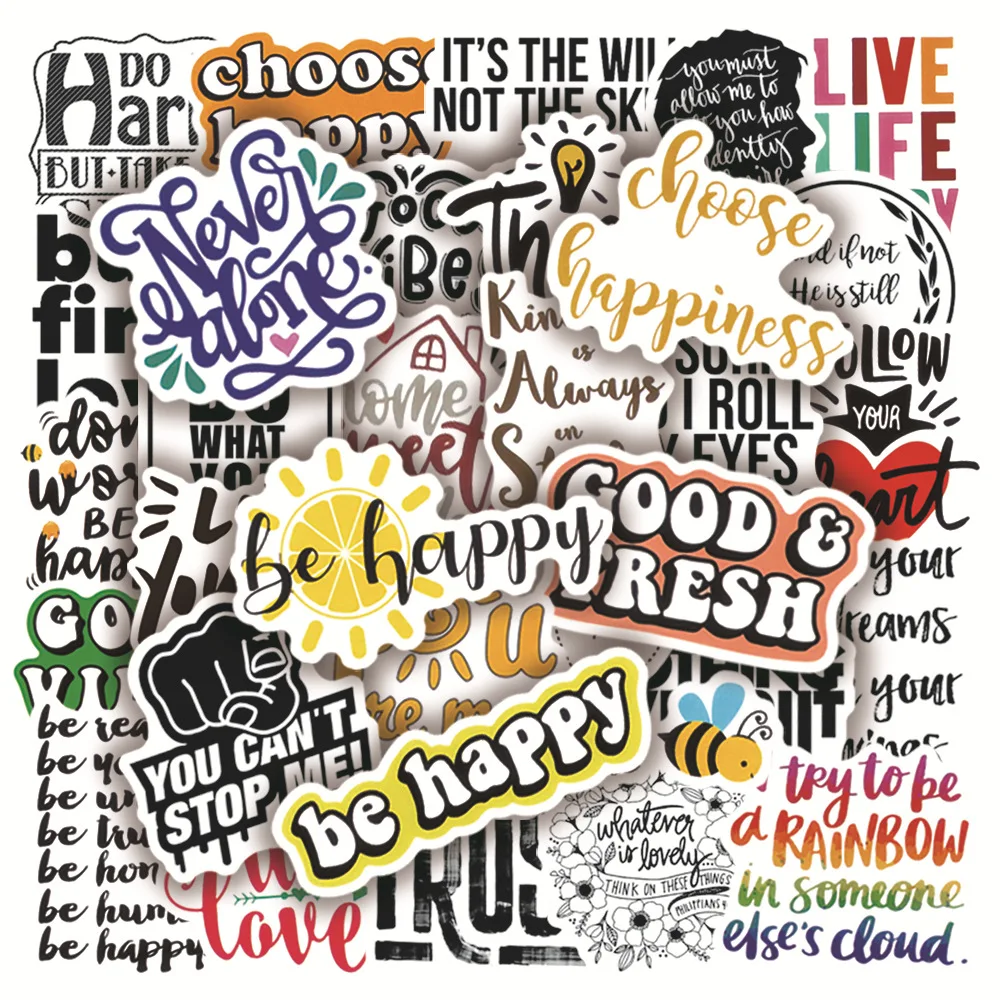 DO
Har
BUT • TAKE
choos
happy
IT'S THE WIL
NOT THE SK
you must
allow me to
you how
dently
LIVE
LIFE
Never
alone
Be
Th
choose
happiness
nd if not
He is still
b
fir
lo
Kin
es
Always
en
St
ome
weet
DO
WHAT
YO
I ROLL
Y EYES
OLLOW
YOUR
eart
don
wor
BE
hap
be happy
GOOD &
FRESH
GO
VI
your
reams
your
wings
YOU CAN'T
STOP ME!
u
re m
be happy
be rea
be yo
be un
be tru
be hon
be hum
be happy
love
TRUS
whatever
is lovely
THINK ON THESE THINGS
PHILIPPIANS 4
try to be
a RAINBOW
in someone
else's cloud.